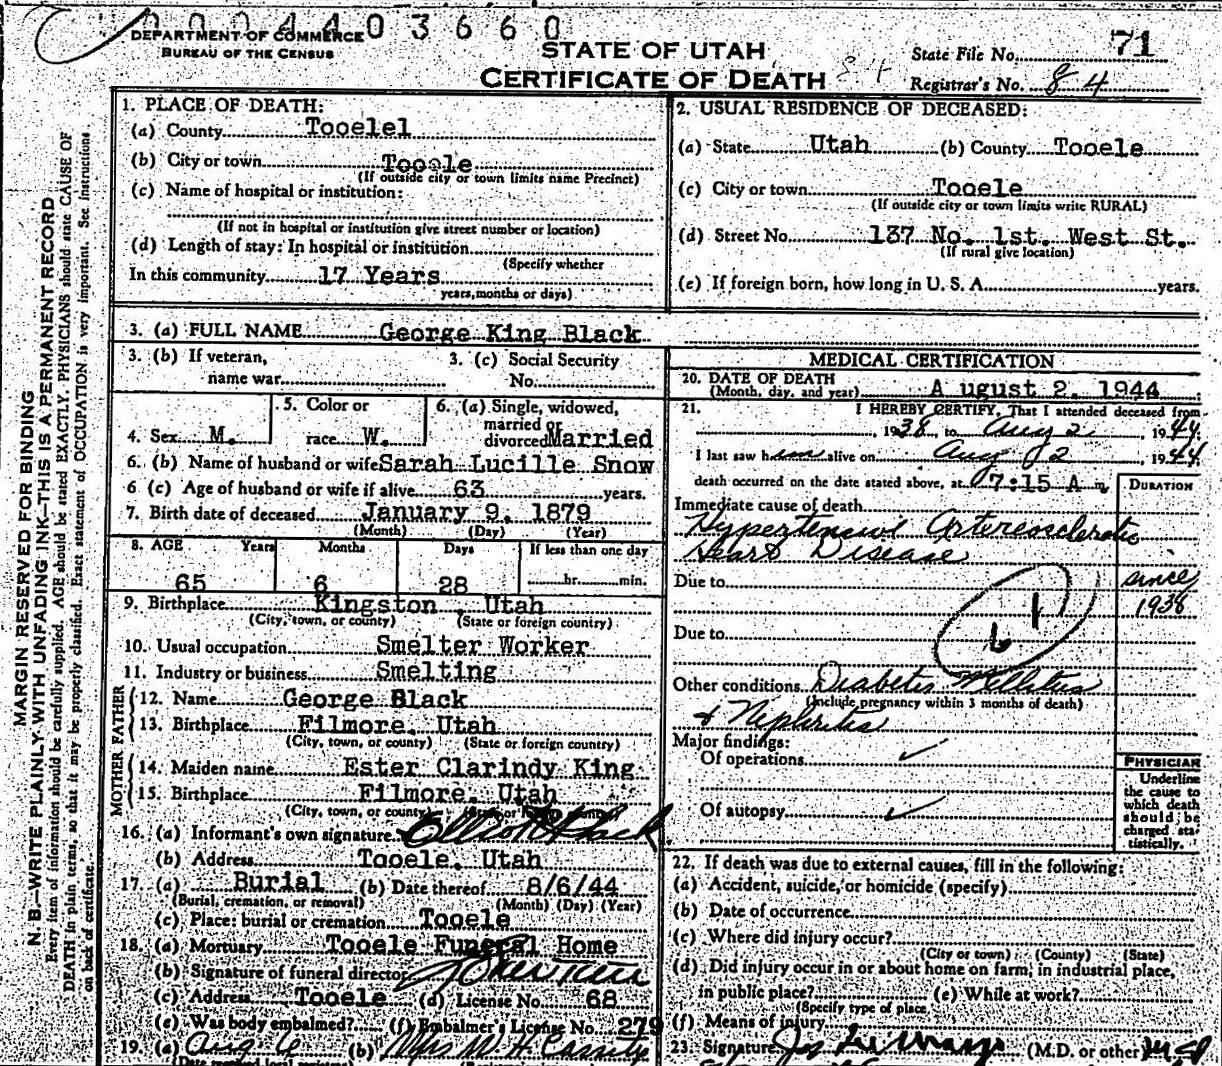 0004403660
DEPARTMENT OF COMMERCE
BUREAU OF THE CENSUS
STATE OF UTAH
CERTIFICATE OF DEATH
84
State File No. 71
Registrar's No. 84
MARGIN RESERVED FOR BINDING
N. B.—WRITE PLAINLY WITH UNFADING INK—THIS IS A PERMANENT RECORD
Every item of information should be carefully supplied. AGE should be stated EXACTLY. PHYSICIANS should state CAUSE OF
DEATH in plain terms, so that it may be properly classified. Exact statement of OCCUPATION is very important. See instructions
on back of certificate.
1. PLACE OF DEATH:
(a) County Tooelel
(b) City or town Tooele
(If outside city or town limits name Precinct)
(c) Name of hospital or institution:
(If not in hospital or institution give street number or location)
(d) Length of stay: In hospital or institution
(Specify whether
In this community 17 Years
years, months or days)
2. USUAL RESIDENCE OF DECEASED:
(a) State Utah (b) County Tooele
(c) City or town Tooele
(If outside city or town limits write RURAL)
(d) Street No. 137 No. 1st. West St.
(If rural give location)
(e) If foreign born, how long in U. S. A. years.
3. (a) FULL NAME George King Black
3. (b) If veteran, name war
3. (c) Social Security No.
4. Sex M.
5. Color or race W.
6. (a) Single, widowed, married or divorced Married
6. (b) Name of husband or wife Sarah Lucille Snow
6 (c) Age of husband or wife if alive 63 years.
7. Birth date of deceased January 9, 1879
(Month) (Day) (Year)
8. AGE Years Months Days If less than one day
65 6 28 hr. min.
9. Birthplace Kingston, Utah
(City, town, or county) (State or foreign country)
10. Usual occupation Smelter Worker
11. Industry or business Smelting
FATHER
12. Name George Black
13. Birthplace Filmore, Utah
(City, town, or county) (State or foreign country)
MOTHER
14. Maiden name Ester Clarindy King
15. Birthplace Filmore, Utah
(City, town, or county) (State or foreign country)
16. (a) Informant's own signature Elliott Black
(b) Address Tooele, Utah
17. (a) Burial (b) Date thereof 8/6/44
(Burial, cremation, or removal) (Month) (Day) (Year)
(c) Place: burial or cremation Tooele
18. (a) Mortuary Tooele Funeral Home
(b) Signature of funeral director
(c) Address Tooele (d) License No. 68
(e) Was body embalmed? (f) Embalmer's License No. 279
19. (a) Aug 6 (b) Mrs M H Cassity
MEDICAL CERTIFICATION
20. DATE OF DEATH
(Month, day, and year) August 2, 1944
21. I HEREBY CERTIFY, That I attended deceased from
1938, to Aug 2, 1944.
I last saw him alive on Aug 2 1944
death occurred on the date stated above, at 7:15 A m.
DURATION
Immediate cause of death
Hypertensive Arteriosclerotic
Heart Disease
Due to since
1938
Due to
61
Other conditions Diabetes Mellitus
(Include pregnancy within 3 months of death)
& Nephritis
Major findings:
Of operations ✓
Of autopsy ✓
PHYSICIAN
Underline
the cause to
which death
should be
charged sta-
tistically.
22. If death was due to external causes, fill in the following:
(a) Accident, suicide, or homicide (specify)
(b) Date of occurrence
(c) Where did injury occur?
(City or town) (County) (State)
(d) Did injury occur in or about home on farm, in industrial place,
in public place? (e) While at work?
(Specify type of place)
(f) Means of injury
23. Signature (M.D. or other) M.D.